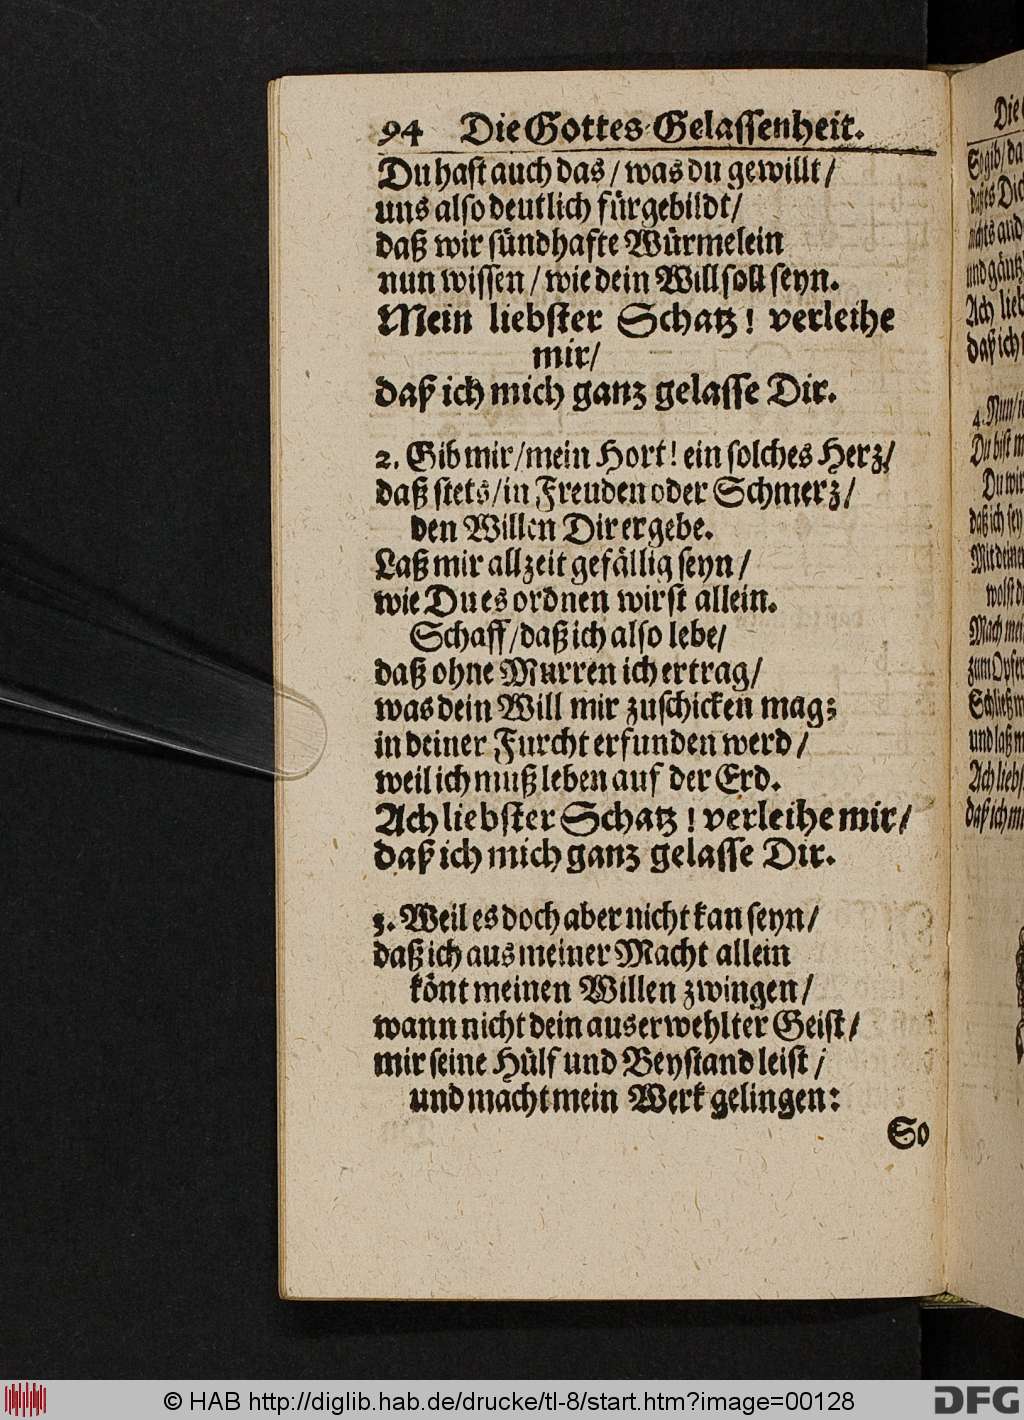 94 Die Gottes-Gelassenheit.
Du hast auch das / was du gewillt /
uns also deutlich fürgebildt /
daß wir sündhafte Würmelein
nun wissen / wie dein Will soll seyn.
Mein liebster Schatz! verleihe
mir /
daß ich mich ganz gelasse Dir.
2. Gib mir / mein Hort! ein solches Herz /
daß stets / in Freuden oder Schmerz /
den Willen Dir ergebe.
Laß mir allzeit gefällig seyn /
wie Du es ordnen wirst allein.
Schaff / daß ich also lebe /
daß ohne Murren ich ertrag /
was dein Will mir zuschicken mag;
in deiner Furcht erfunden werd /
weil ich muß leben auf der Erd.
Ach liebster Schatz! verleihe mir /
daß ich mich ganz gelasse Dir.
3. Weil es doch aber nicht kan seyn /
daß ich aus meiner Macht allein
könt meinen Willen zwingen /
wann nicht dein auserwehlter Geist /
mir seine Hülf und Beystand leist /
und macht mein Werk gelingen:
So
Die
So gib / da
daß es Dic
nichts and
und gäntz
Ach lieb
daß ich
4. Nun / i
Du bist m
Du wir
daß ich sey
Mit deine
wolst d
Mach mei
zum Opfer
Schließ m
und laß m
Ach liebs
daß ich m
© HAB http://diglib.hab.de/drucke/tl-8/start.htm?image=00128
DFG